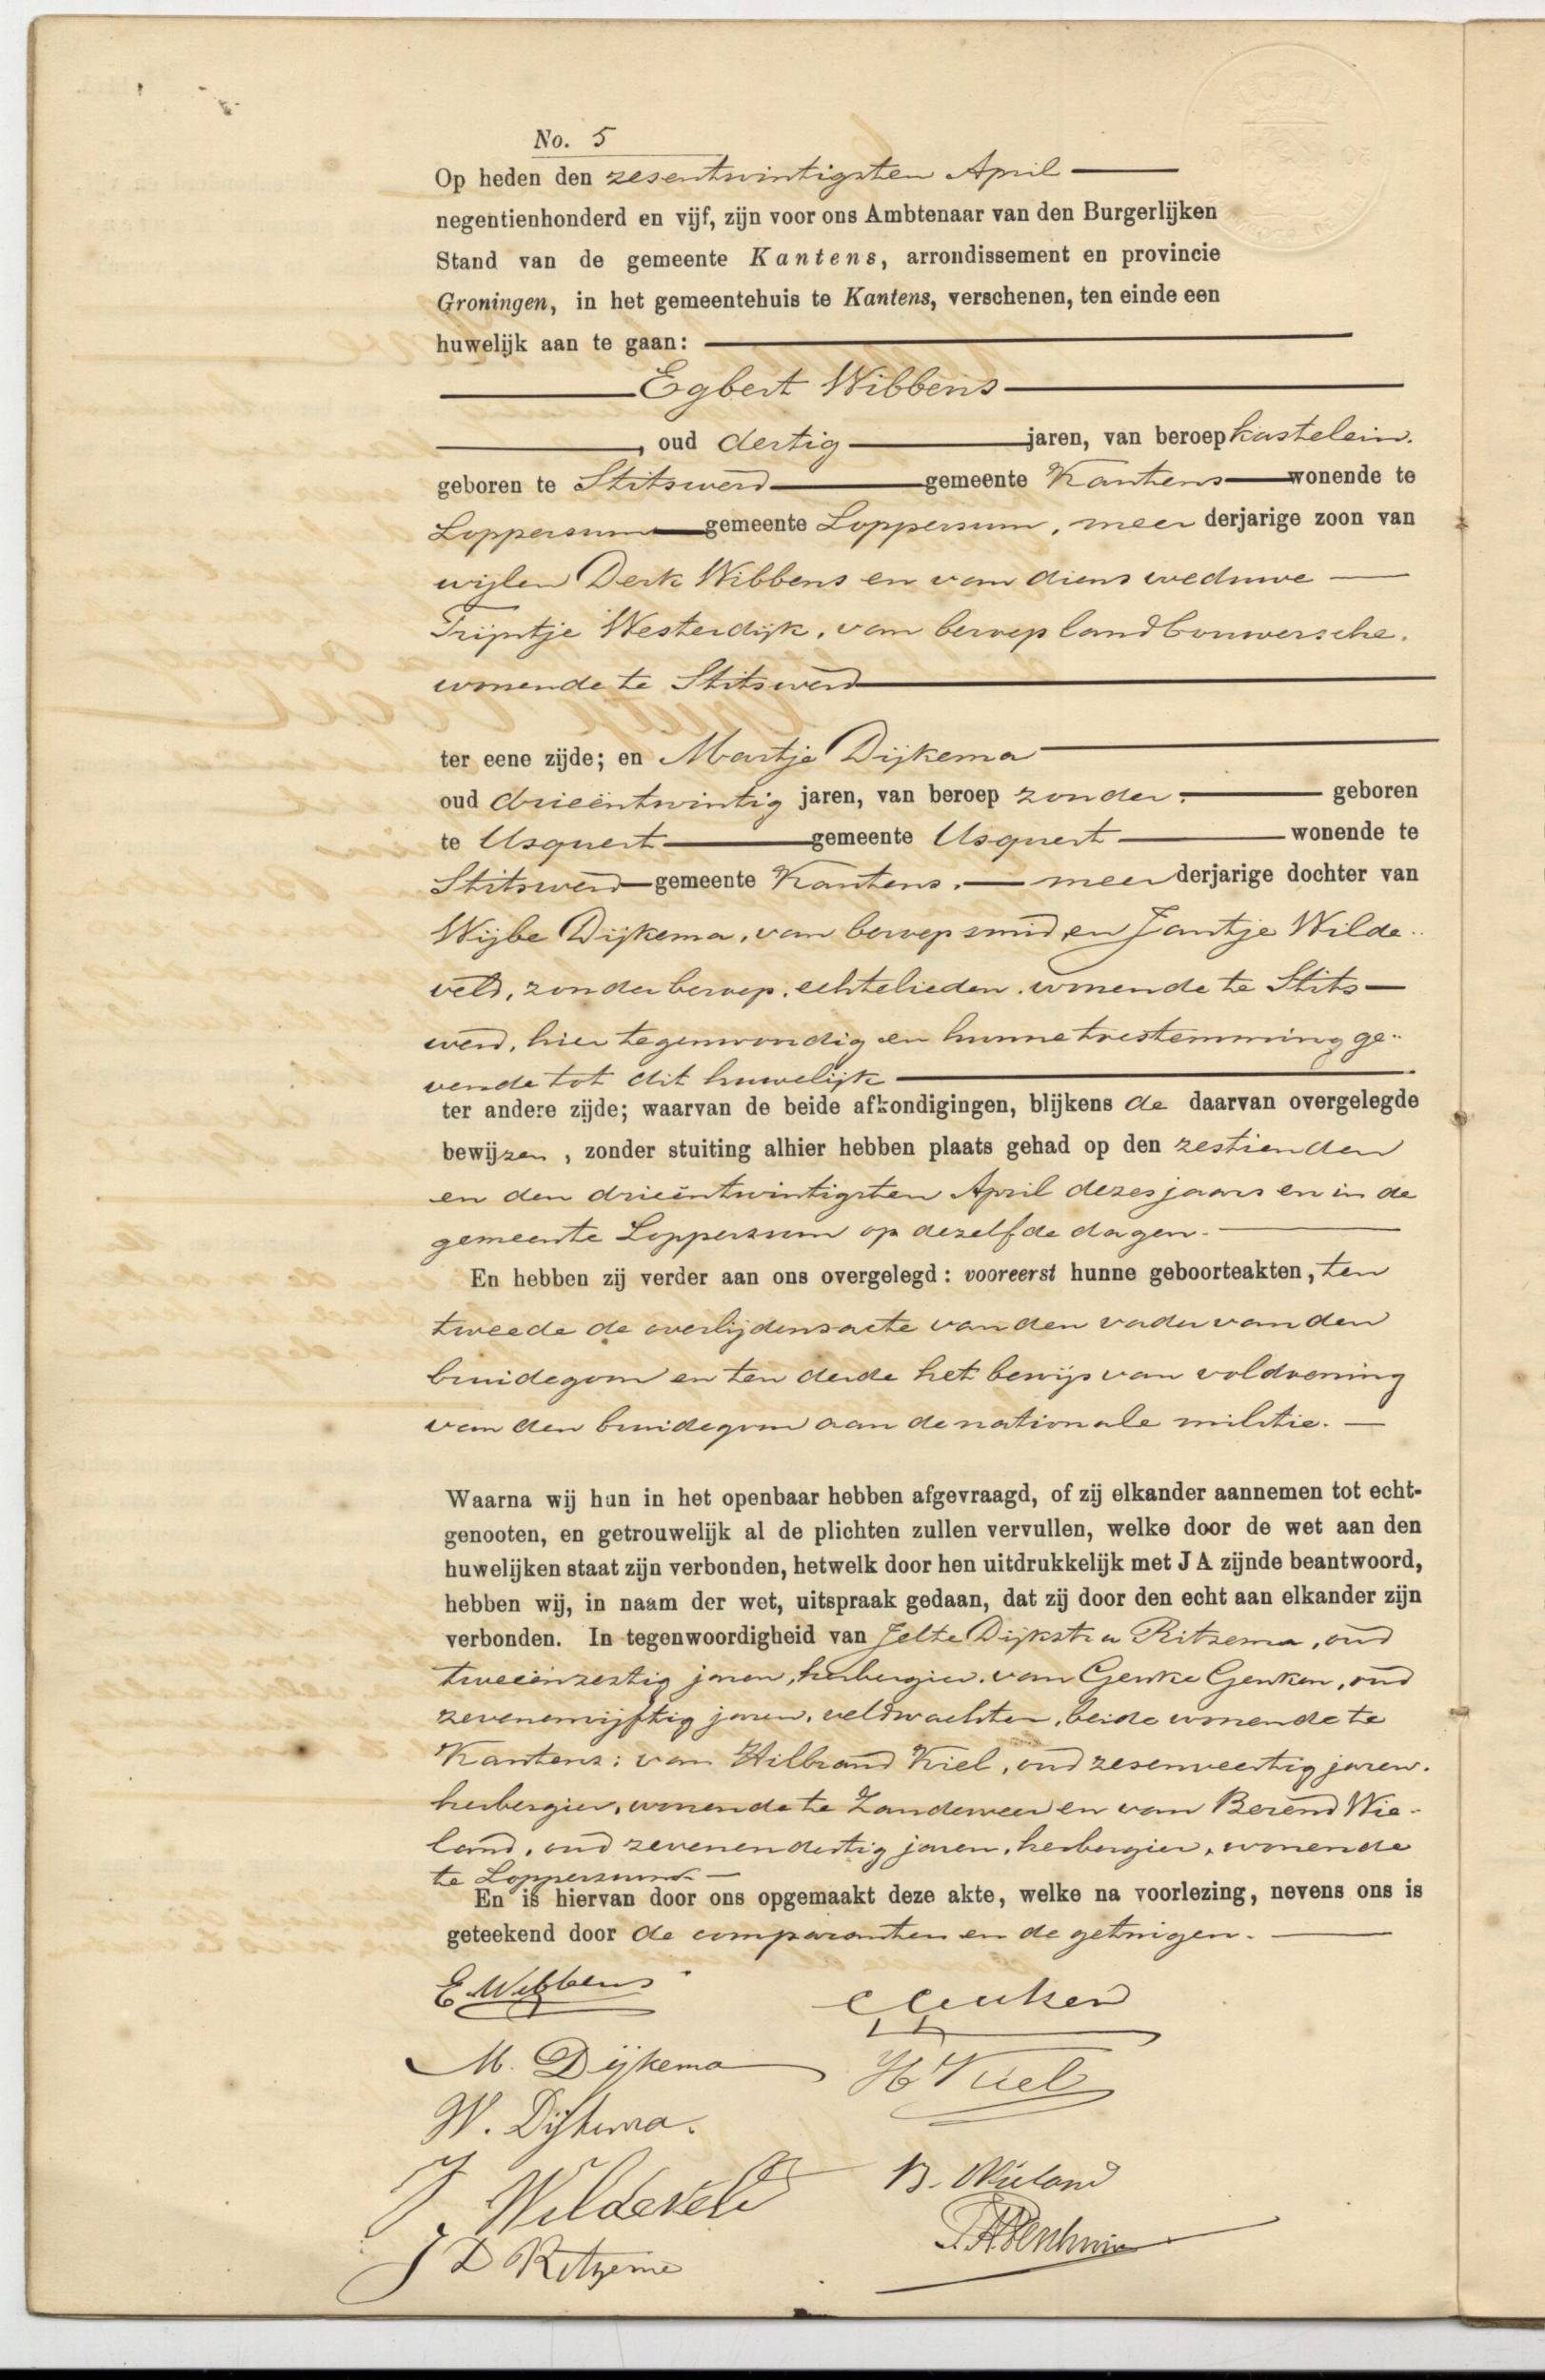 No. 5
Op heden den zesentwintigsten April
negentienhonderd en vijf, zijn voor ons Ambtenaar van den Burgerlijken
Stand van de gemeente Kantens, arrondissement en provincie
Groningen, in het gemeentehuis te Kantens, verschenen, ten einde een
huwelijk aan te gaan:
Egbert Wibbens
, oud dertig jaren, van beroep kastelein.
geboren te Stitswerd gemeente Kantens wonende te
Loppersum gemeente Loppersum, meer derjarige zoon van
wijlen Derk Wibbens en van diens weduwe
Trijntje Westerdijk, van beroep landbouwersche,
wonende te Stitswerd
ter eene zijde; en Martje Dijkema
oud drieëntwintig jaren, van beroep zonder. geboren
te Usquert gemeente Usquert wonende te
Stitswerd gemeente Kantens, meer derjarige dochter van
Wijbe Dijkema, van beroep smid, en Jantje Wilde-
veld, zonder beroep, echtelieden, wonende te Stits-
werd, hier tegenwoordig en hunne toestemming ge-
vende tot dit huwelijk
ter andere zijde; waarvan de beide afkondigingen, blijkens de daarvan overgelegde
bewijzen, zonder stuiting alhier hebben plaats gehad op den zestienden
en den drieëntwintigsten April dezes jaars en in de
gemeente Loppersum op dezelfde dagen.
En hebben zij verder aan ons overgelegd: vooreerst hunne geboorteakten, ten
tweede de overlijdensacte van den vader van den
bruidegom en ten derde het bewijs van voldoening
van den bruidegom aan de nationale militie.
Waarna wij hun in het openbaar hebben afgevraagd, of zij elkander aannemen tot echt-
genooten, en getrouwelijk al de plichten zullen vervullen, welke door de wet aan den
huwelijken staat zijn verbonden, hetwelk door hen uitdrukkelijk met JA zijnde beantwoord,
hebben wij, in naam der wet, uitspraak gedaan, dat zij door den echt aan elkander zijn
verbonden. In tegenwoordigheid van Jelte Dijkstra Ritzema, oud
tweeënzestig jaren, herbergier, van Geuke Geuken, oud
zevenenvijftig jaren, veldwachter, beide wonende te
Kantens; van Hilbrand Kiel, oud zesenveertig jaren,
herbergier, wonende te Zandeweer en van Berend Wie-
land, oud zevenendertig jaren, herbergier, wonende
te Loppersum.
En is hiervan door ons opgemaakt deze akte, welke na voorlezing, nevens ons is
geteekend door de comparanten en de getuigen.
E. Wibbens
G Geuken
M. Dijkema
H Kiel
W. Dijkema.
J. Wildeveld
B. Wieland
J D Ritzema